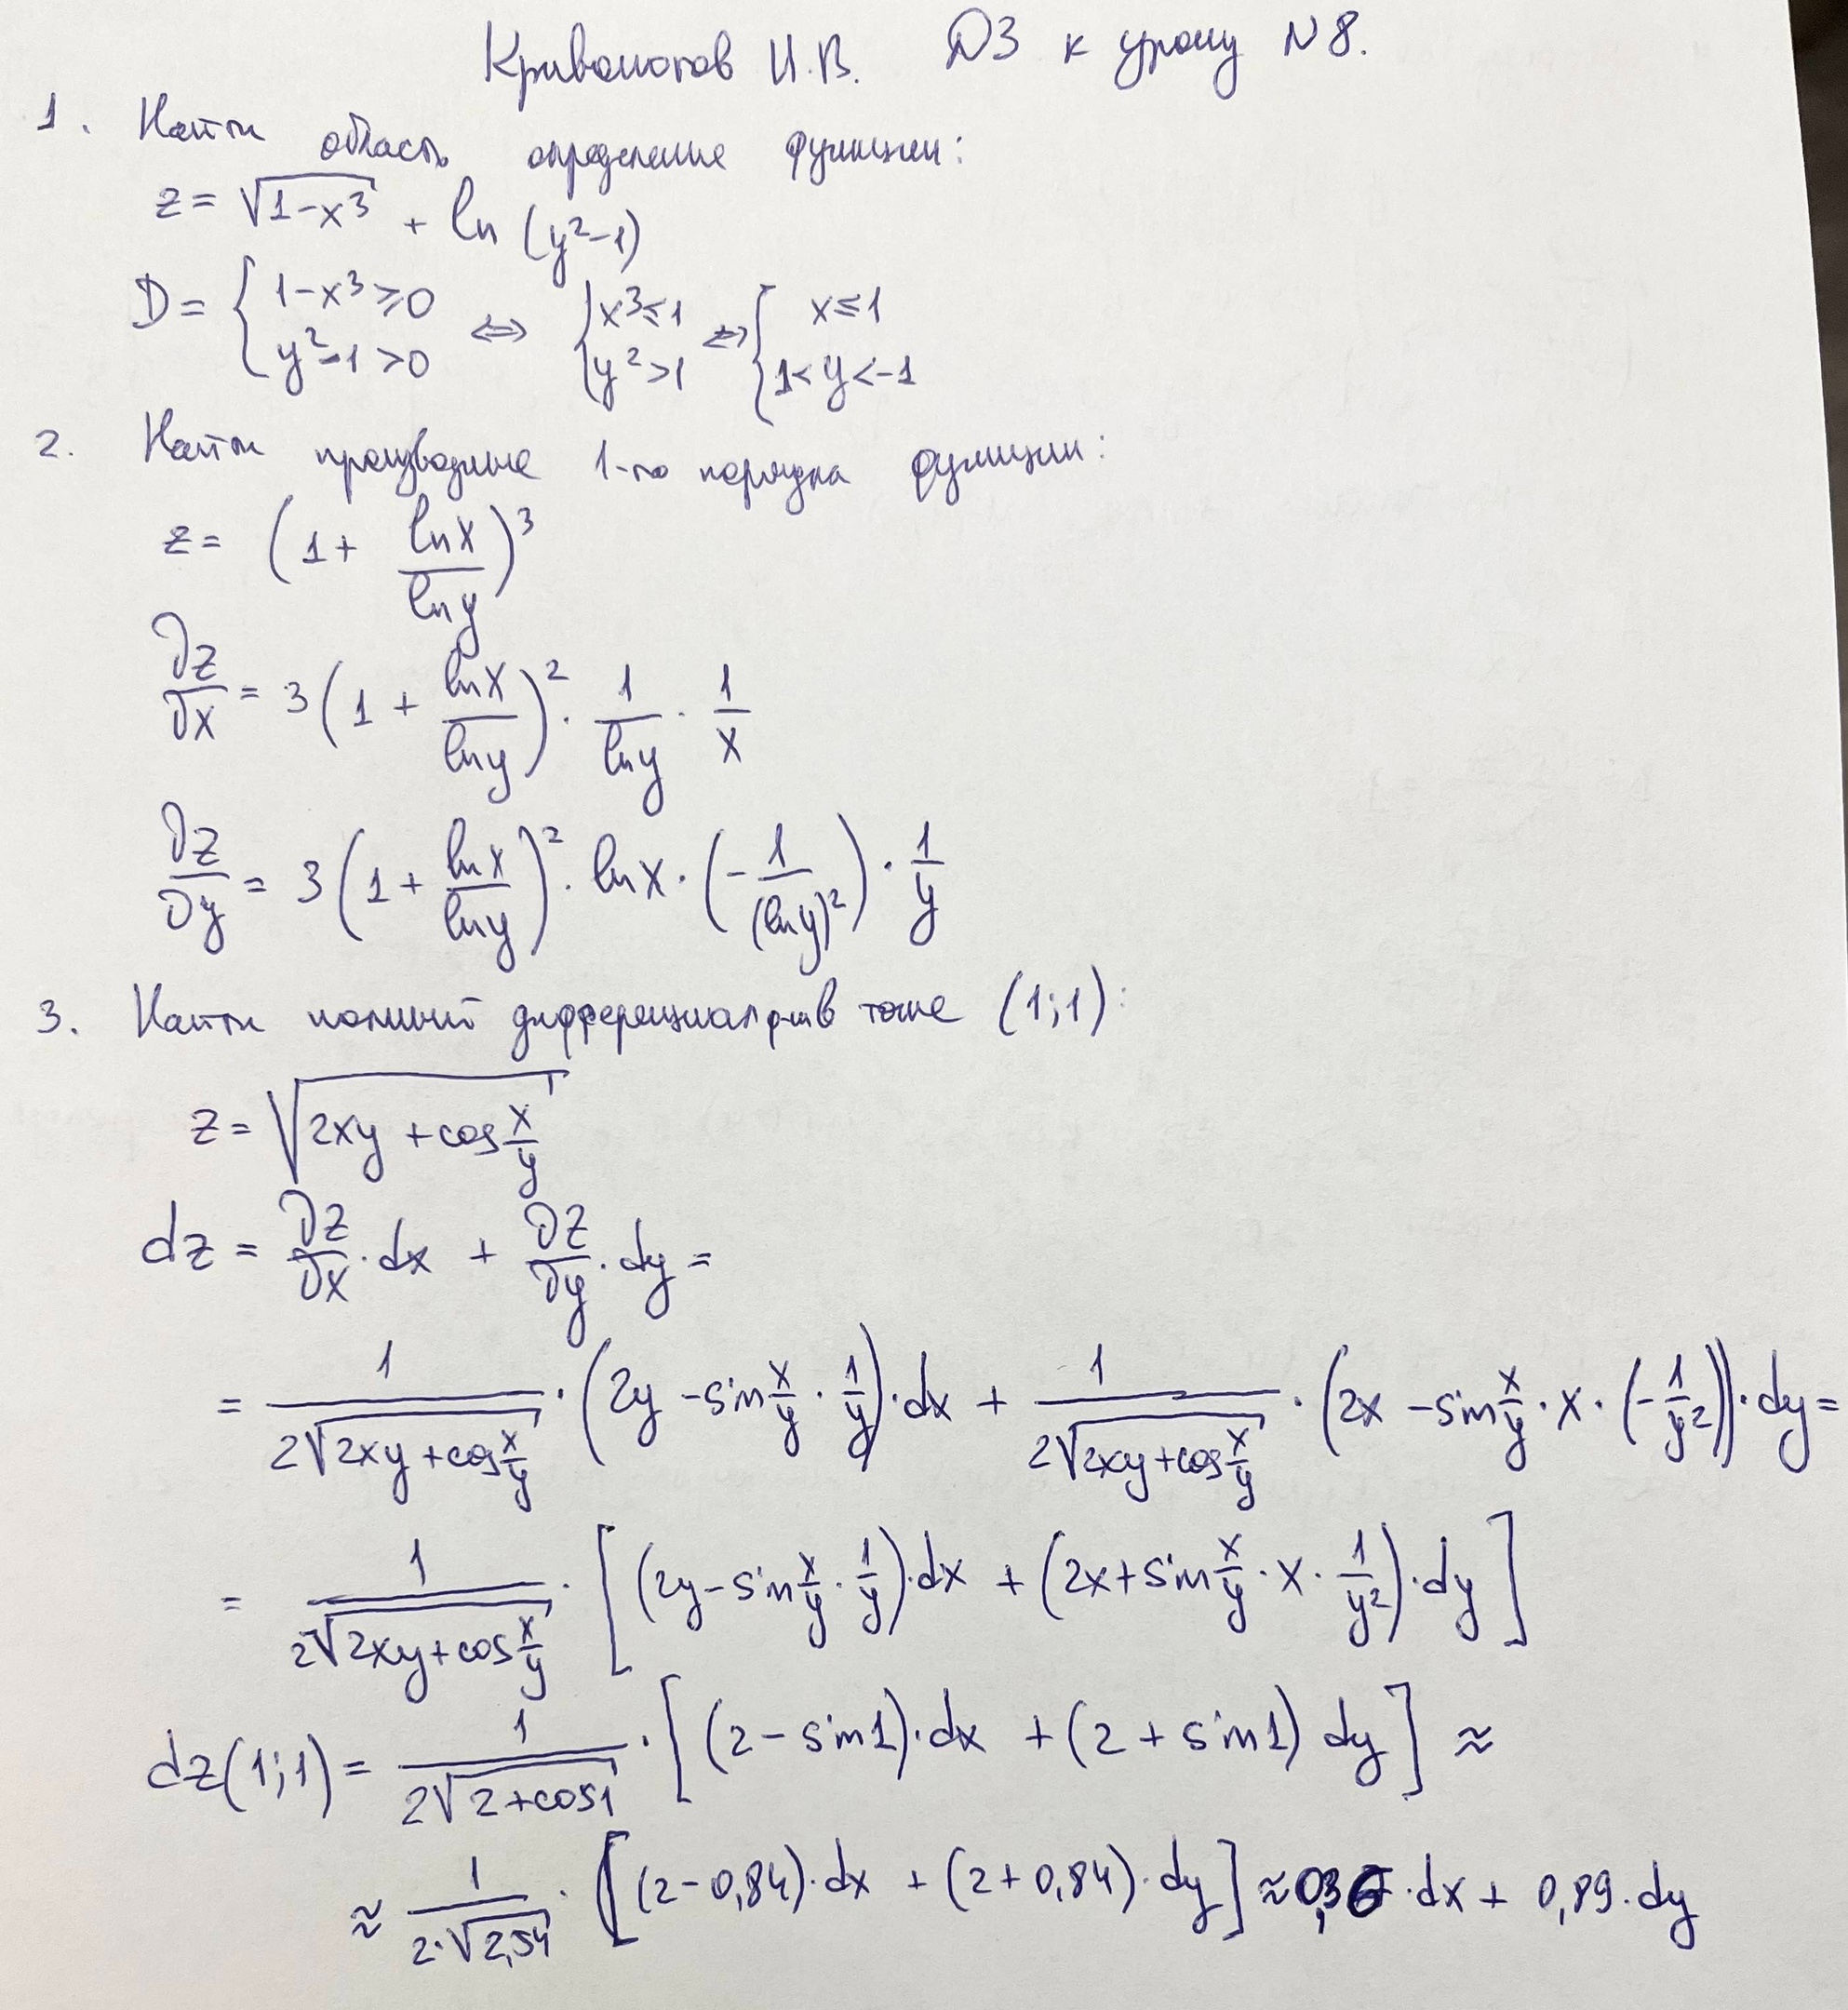 Кривоногов И.В. ДЗ к уроку №8.
1. Найти область определение функции:
z = √(1-x³) + ln (y²-1)
D = { 1-x³ ≥ 0, y²-1 > 0 ⇔ { x³ ≤ 1, y² > 1 ⇔ { x ≤ 1, 1 < y < -1
2. Найти производные 1-го порядка функции:
z = (1 + ln x / ln y)³
∂z/∂x = 3(1 + ln x / ln y)² · 1/ln y · 1/x
∂z/∂y = 3(1 + ln x / ln y)² · ln x · (- 1/(ln y)²) · 1/y
3. Найти полный дифференциал ф-ии в точке (1;1):
z = √(2xy + cos x/y)
dz = ∂z/∂x · dx + ∂z/∂y · dy =
= 1/(2√(2xy + cos x/y)) · (2y - sin x/y · 1/y) · dx + 1/(2√(2xy + cos x/y)) · (2x - sin x/y · x · (- 1/y²)) · dy =
= 1/(2√(2xy + cos x/y)) · [(2y - sin x/y · 1/y) · dx + (2x + sin x/y · x · 1/y²) · dy]
dz(1;1) = 1/(2√(2 + cos1)) · [(2 - sin1) · dx + (2 + sin1) dy] ≈
≈ 1/(2·√2,54) · [(2 - 0,84) · dx + (2 + 0,84) · dy] ≈ 0,36 · dx + 0,89 · dy